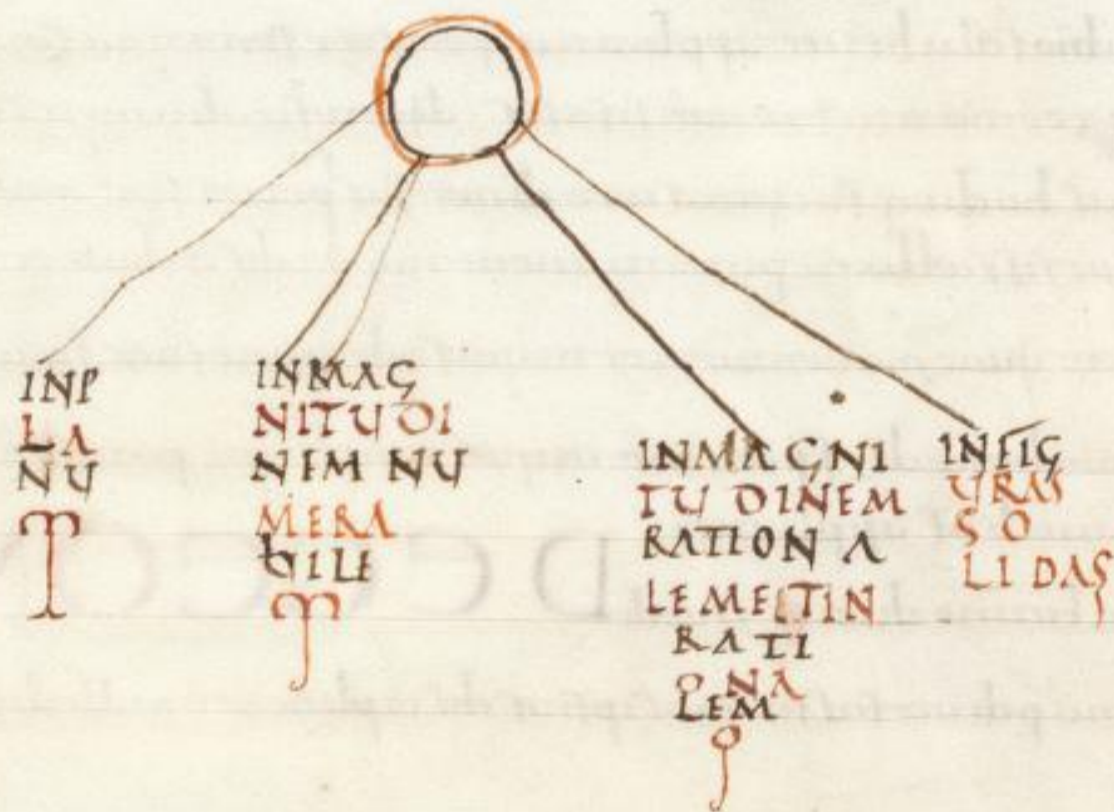 INP
LA
NU
M
INMAG
NITUDI
NEM NU
MERA
BILE
M
INMAGNI
TUDINEM
RATIONA
LEMETIN
RATI
ONA
LEM
INFIG
URAS
SO
LIDAS